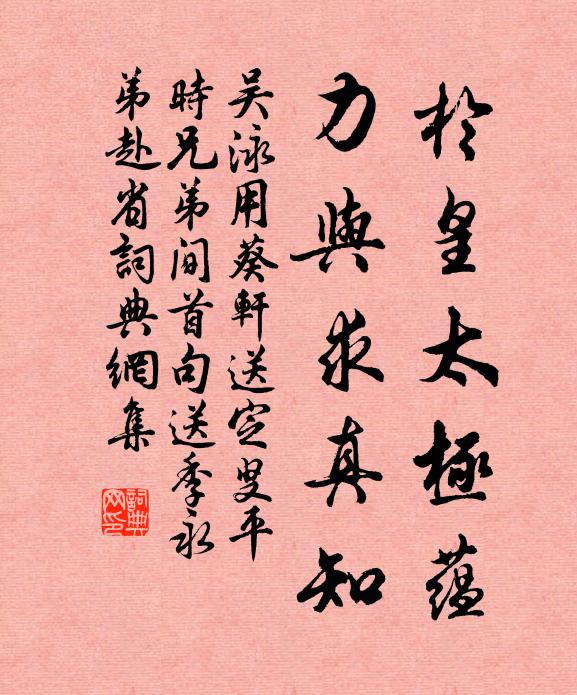 於皇太極蘊
力與求真知
吴泳用葵軒送定叟平
時兄弟間首句送季永
弟赴省詞典網集
詞典网印